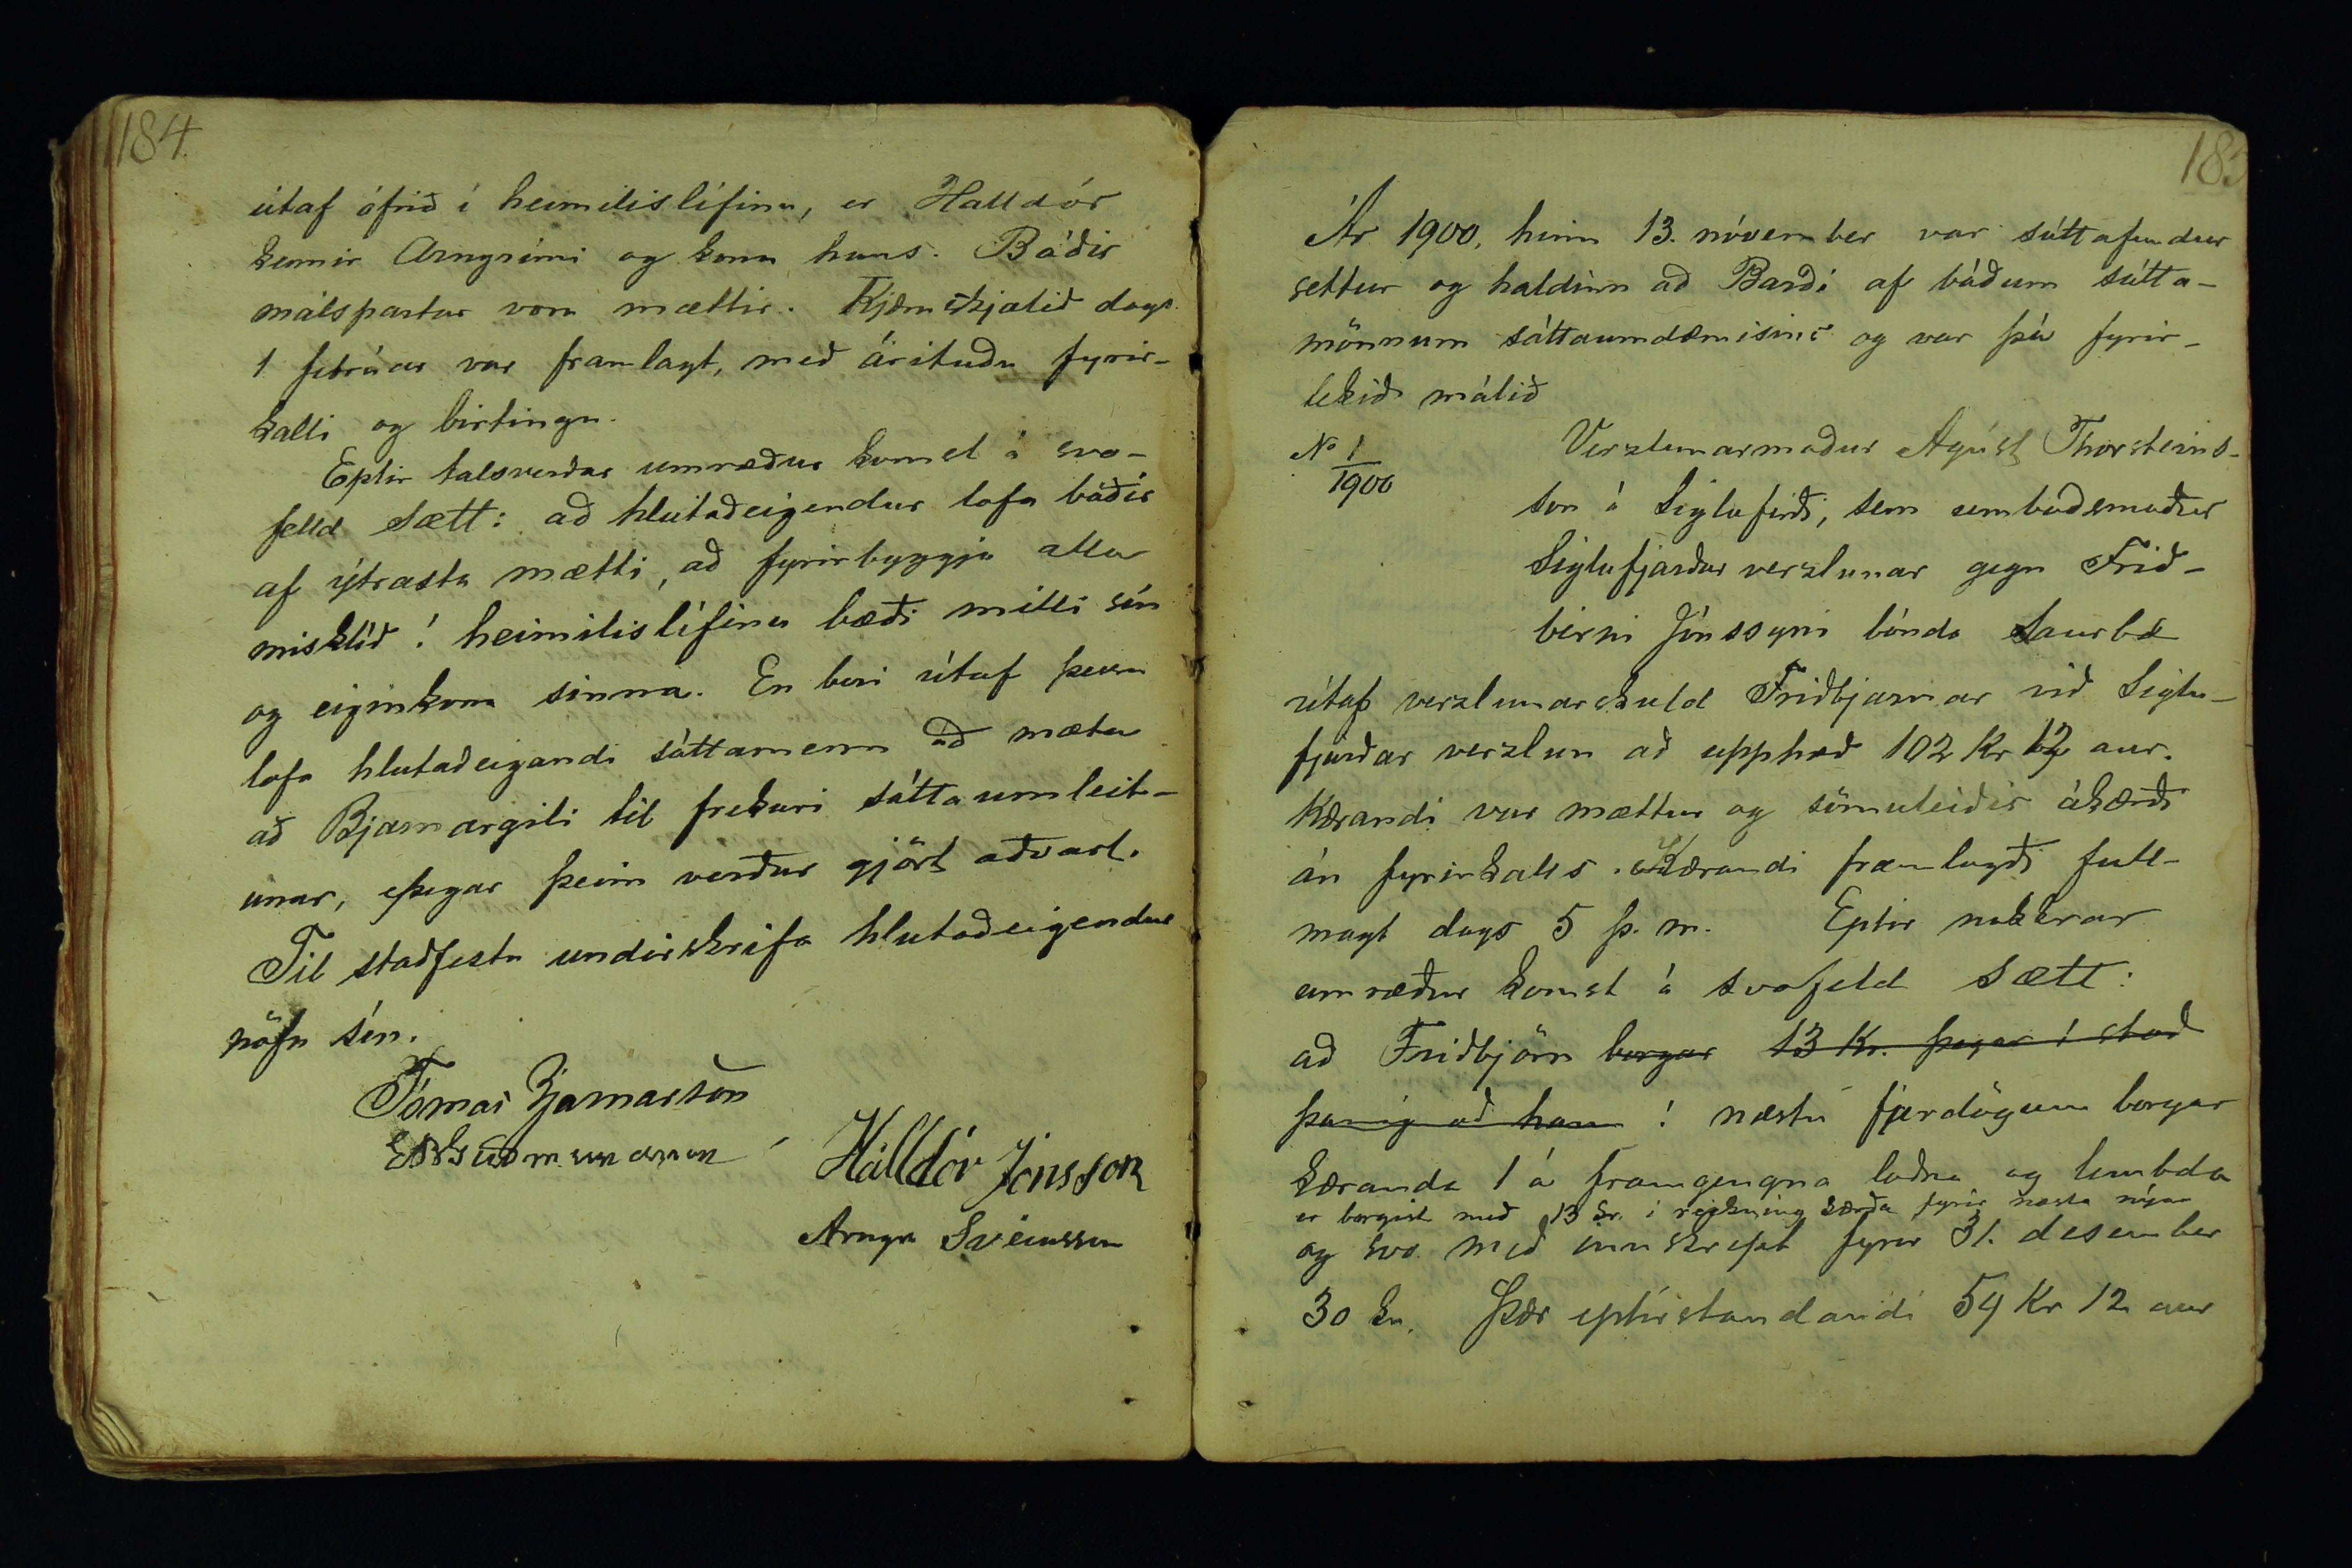 184.
útaf ófrið í heimilislífinu, er Halldór
kennir Arngrími og konu hans. Báðir
málspartar voru mættir. Kjæruskjalið dags.
1 febrúar var framlagt, með árituðu fyrir-
kalli og birtingu.
Eptir talsverðar umræður komst á svo-
felld sætt: að hlutaðeigendur lofa báðir
af ýtrasta mætti, að fyrirbyggja alla
misklíð í heimilislífinu bæði milli sín
og eiginkona sinna. En beri útaf þessu
lofa hlutaðeigandi sáttamenn að mæta
að Bjarnargili til frekari sáttaumleit-
unar, þegar þeim verður gjört aðvart.
Til staðfestu undirskrifa hlutaðeigendur
nöfn sín.
Tómas Bjarnarson
Guðmundsson
Halldór Jónsson
Arngr Sveinsson
185
Ár 1900, hinn 13. nóvember var sáttafundur
settur og haldinn að Barði af báðum sátta-
mönnum sáttaumdæmisins og var þá fyrir-
tekið málið
No 1/1900
Verzlunarmaður Agúst Thorsteins-
son á Siglufirði, sem umboðsmaður
Siglufjarðar verzlunar gegn Frið-
birni Jónssyni bónda Saurbæ
útaf verzlunarskuld Friðbjarnar við Siglu-
fjarðar verzlun að upphæð 102 Kr 12 aur.
Kærandi var mættur og sömuleiðis ákærði
án fyrirkalls. Kærandi framlagði full-
magt dags 5 þ. m. Eptir nokkrar
umræður komst á svofeld sætt:
að Friðbjörn borgar 13 Kr. þegar í stað
þannig að hann í næstu fardögum borgar
kæranda 1 á framgengna loðna og lembda
er borgist með 13 kr. í reikning kærða fyrir næsta nýár
og svo með innskript fyrir 31. desember
30 kr. Þær eptirstandandi 54 Kr 12 aur